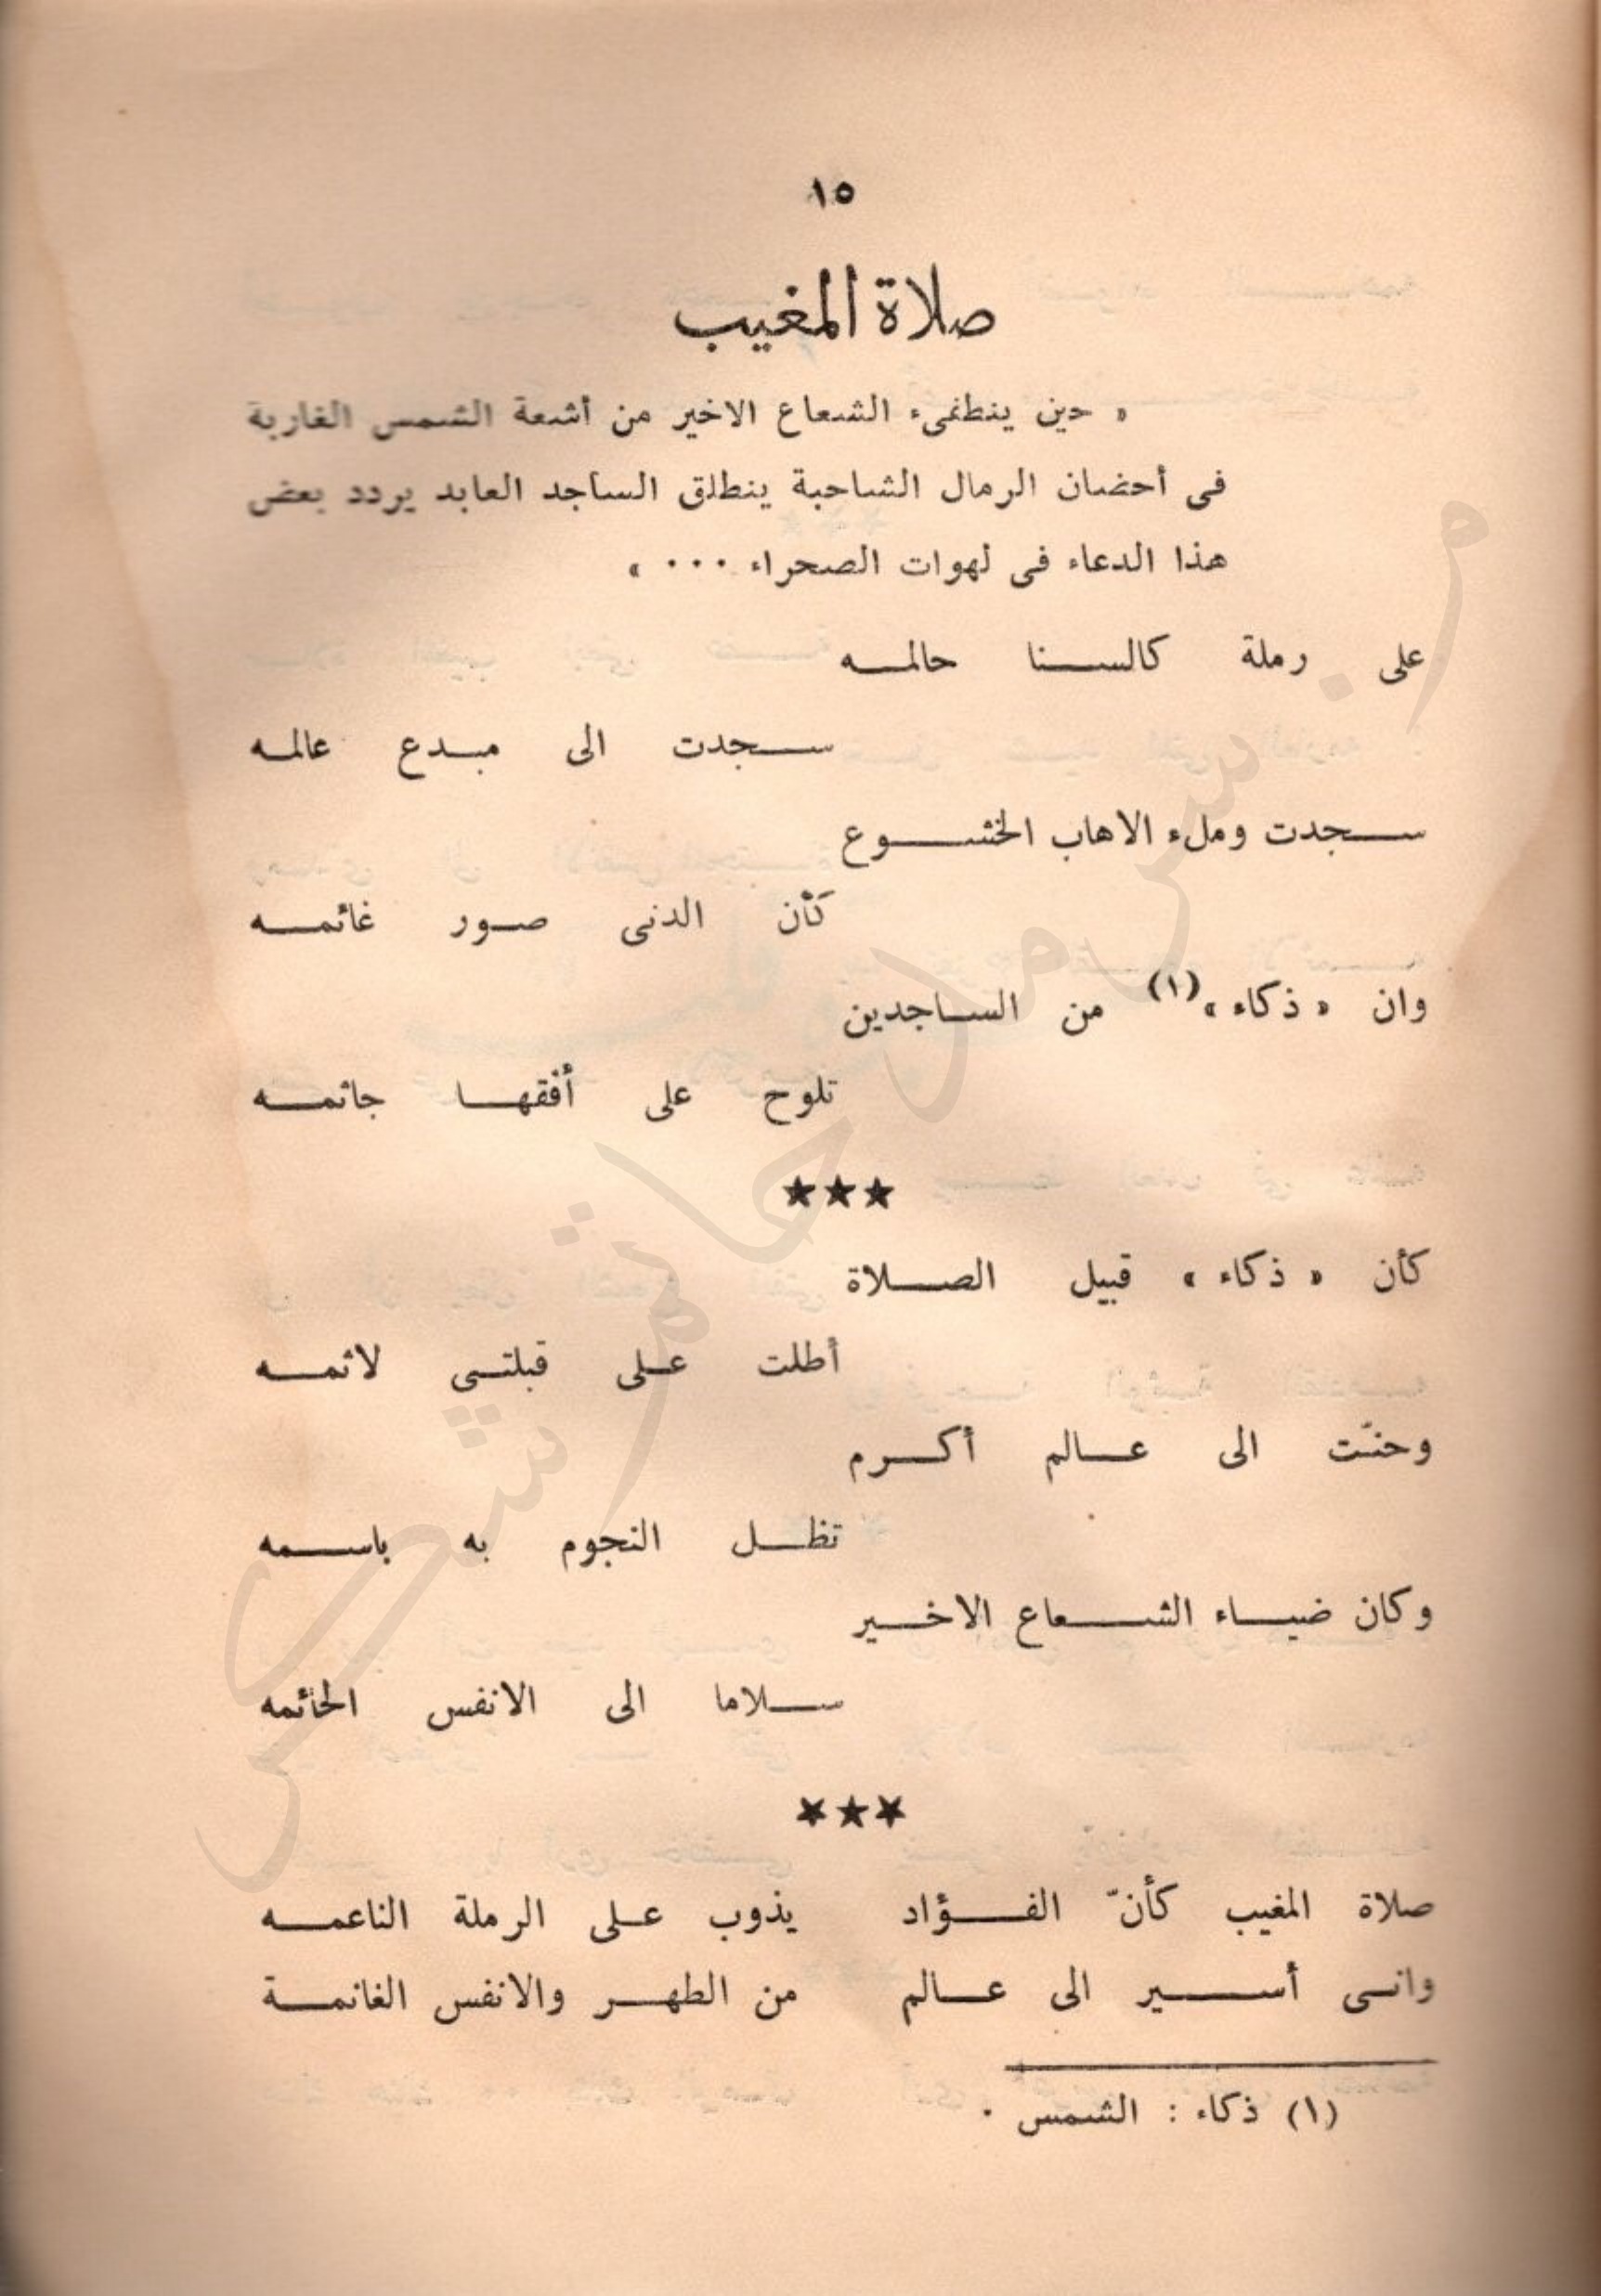 ١٥
صلاة المغيب
« حين ينطفىء الشعاع الاخير من أشعة الشمس الغاربة
فى أحضان الرمال الشاحبة ينطلق الساجد العابد يردد بعض
هذا الدعاء فى لهوات الصحراء ... »
على رملة كالسنا حالمه
سجدت الى مبدع عالمه
سجدت وملء الاهاب الخشوع
كأن الدنى صور غائمه
وان « ذكاء »(١) من الساجدين
تلوح على أفقها جاثمه
★★★
كأن « ذكاء » قبيل الصلاة
أطلت على قبلتى لاثمه
وحنّت الى عالم أكرم
تظل النجوم به باسمه
وكان ضياء الشعاع الاخير
سلاما الى الانفس الحائمه
★★★
صلاة المغيب كأنّ الفؤاد يذوب على الرملة الناعمه
وانى أسير الى عالم من الطهر والانفس الغانمة
(١) ذكاء : الشمس .